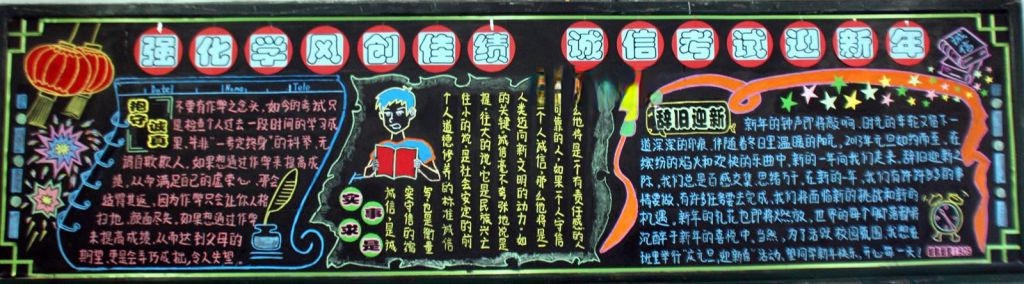 强化学风创佳绩 诚信考试迎新年
诚信
Date Name Tele
抱守诚真
不要有作弊之念头,如今的考试只
是检查个人过去一段时间的学习成
果,并非"一考定终身"的科举,无
须自欺欺人,如果想通过作弊来提高成
绩,从而满足自己的虚荣心,那会
适得其返,因为作弊只会让你人格
扫地,颜面尽失,如果想通过作弊
来提高成绩,从而达到父母的
期望,更是会弄巧成拙,令人失望。
实事求是
么他将是一个有责任感的人
可靠的人,如果一个人守信
一个人诚信,那么他将是一
人类迈向新文明的动力,如
的关键,诚信毫不夸张地说是
提,往大的说,它是民族兴亡
往小的说,是社会安定的前
个人道德修养的标准,诚信
写也是衡量
实守信的缩
诚信,是诚
辞旧迎新
新年的钟声即将敲响,时光的车轮又留下一
道深深的印痕,伴随着冬日里温暖的阳光,2013年元旦如约而至。在
缤纷的焰火和欢快的年曲中,新的一年向我们走来。辞旧迎新之
际,我们总是百感交集,思绪万千,在新的一年,我们有许许多多的事
情要做,有许多任务要去完成,我们将面临新的挑战和新的
机遇。新年的礼花已即将燃放,世界的每个脚落都将
沉醉于新年的喜悦中。当然,为了活跃校园氛围,我想在
班里举行"庆元旦,迎新春"活动,望同学新年快乐,开心每一天!